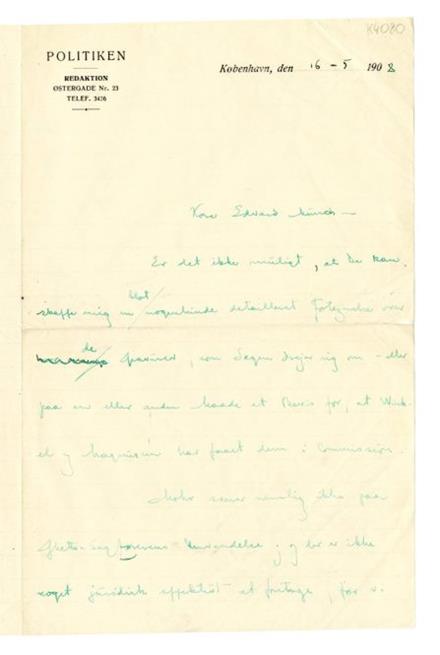 K4080
POLITIKEN
REDAKTION
ØSTERGADE Nr. 23
TELEF. 3476
København, den 16 - 5 1908
Kære Edvard Munch -
Er det ikke muligt, at De kan
skaffe mig en blot nogenlunde detailleret Fortegnelse over
de Graviner, som Sagen drejer sig om - eller
paa en eller anden Maade et Bevis for, at Wink-
el & Magnussen har faaet dem i Commission.
svarer nemlig ikke paa
Henvendelse; og der er ikke
noget juridisk effektivt at foretage, før v.